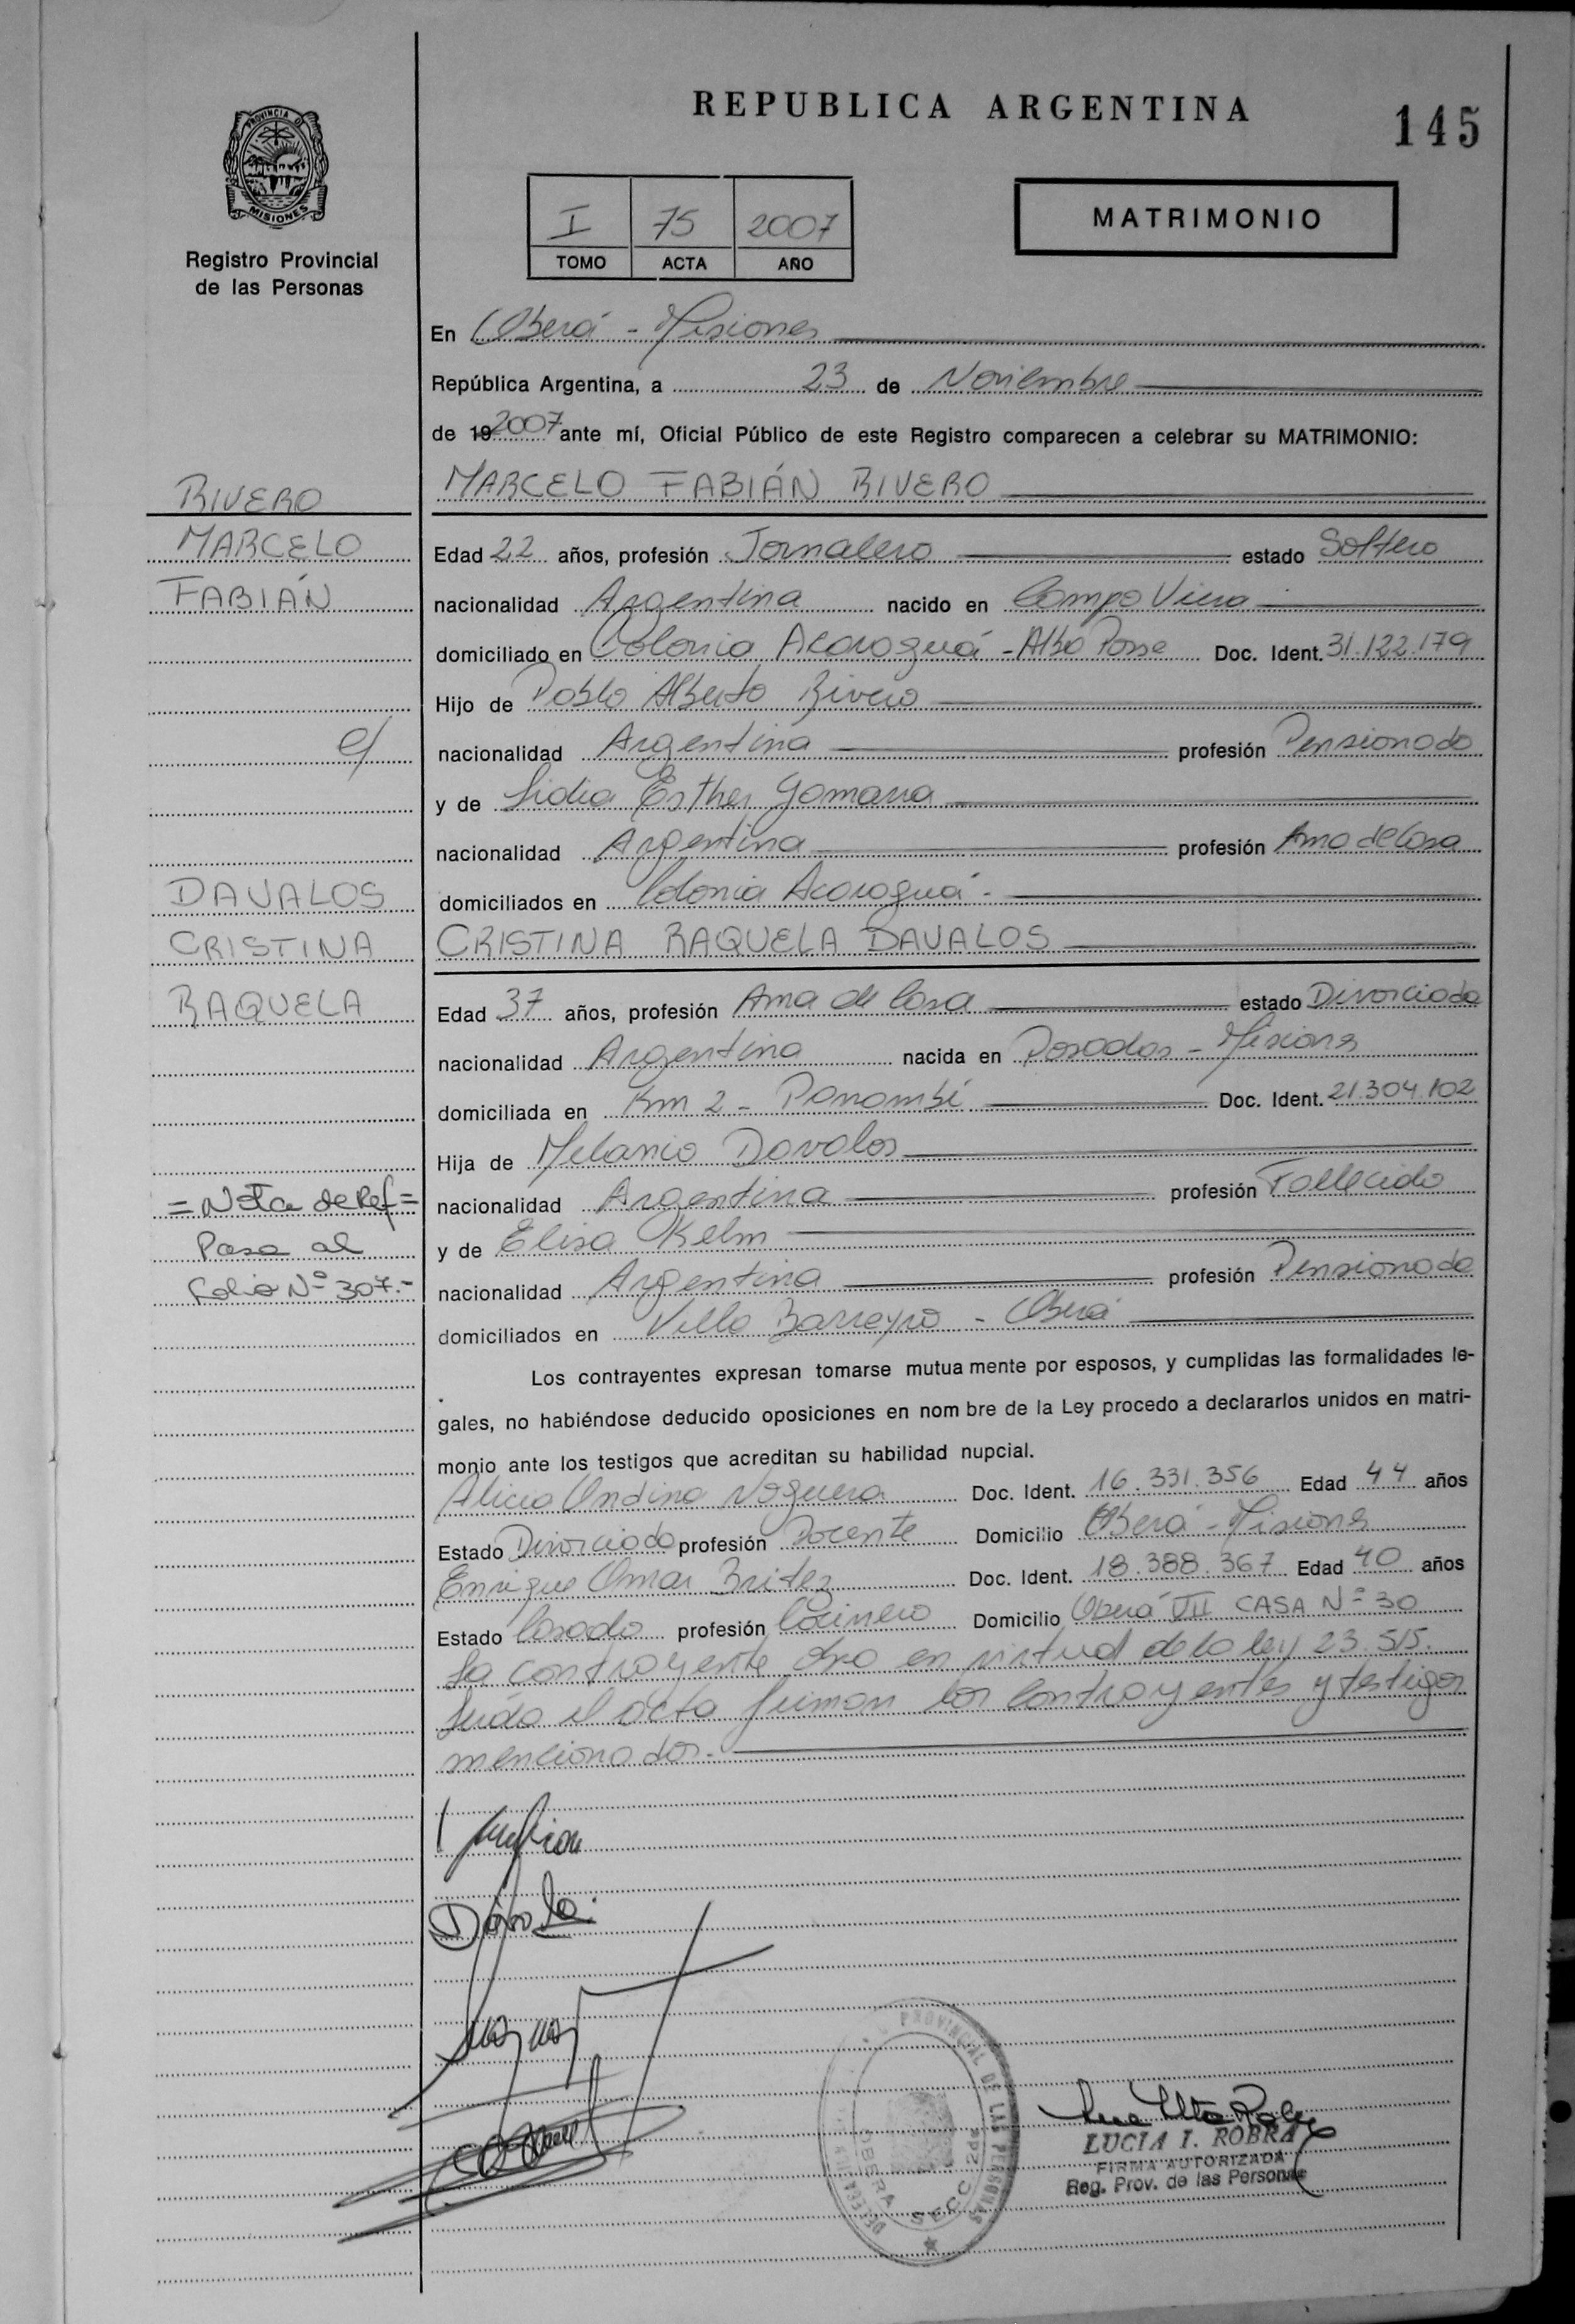 REPUBLICA ARGENTINA
145
PROVINCIA DE
MISIONES
Registro Provincial
de las Personas
I 75 2007
TOMO ACTA AÑO
MATRIMONIO
En Oberá - Misiones
República Argentina, a 23 de Noviembre
de 19 2007 ante mí, Oficial Público de este Registro comparecen a celebrar su MATRIMONIO:
MARCELO FABIÁN RIVERO
Edad 22 años, profesión Jornalero estado Soltero
nacionalidad Argentina nacido en Campo Viera
domiciliado en Colonia Acaraguá - Alba Posse Doc. Ident. 31.122.179
Hijo de Pablo Alberto Rivero
nacionalidad Argentina profesión Pensionado
y de Lidia Esther Gomara
nacionalidad Argentina profesión Ama de Casa
domiciliados en Colonia Acaraguá -
CRISTINA RAQUELA DAVALOS
Edad 37 años, profesión Ama de Casa estado Divorciada
nacionalidad Argentina nacida en Posadas - Misiones
domiciliada en Km 2 - Panambí Doc. Ident. 21.304.102
Hija de Melanio Davalos
nacionalidad Argentina profesión Fallecido
y de Elisa Kelm
nacionalidad Argentina profesión Pensionada
domiciliados en Villa Barreyro - Oberá
Los contrayentes expresan tomarse mutua mente por esposos, y cumplidas las formalidades le-
gales, no habiéndose deducido oposiciones en nom bre de la Ley procedo a declararlos unidos en matri-
monio ante los testigos que acreditan su habilidad nupcial.
Alicia Undina Noguera Doc. Ident. 16.331.356 Edad 44 años
Estado Divorciada profesión Docente Domicilio Oberá - Misiones
Enrique Omar Britez Doc. Ident. 18.388.367 Edad 40 años
Estado Casado profesión Cocinero Domicilio Oberá VII CASA Nº 30
La contrayente dra en virtud de la ley 23.515.
Leída el acta firman los contrayentes y testigos
mencionados.-
RIVERO
MARCELO
FABIÁN
c/
DAVALOS
CRISTINA
RAQUELA
= Nota de Ref =
Pasa al
Folio Nº 307.-
Davalo
PROVINCIAL DE LAS PERSONAS
OBERA
SECC
LUCIA I. ROBRA
FIRMA AUTORIZADA
Reg. Prov. de las Personas